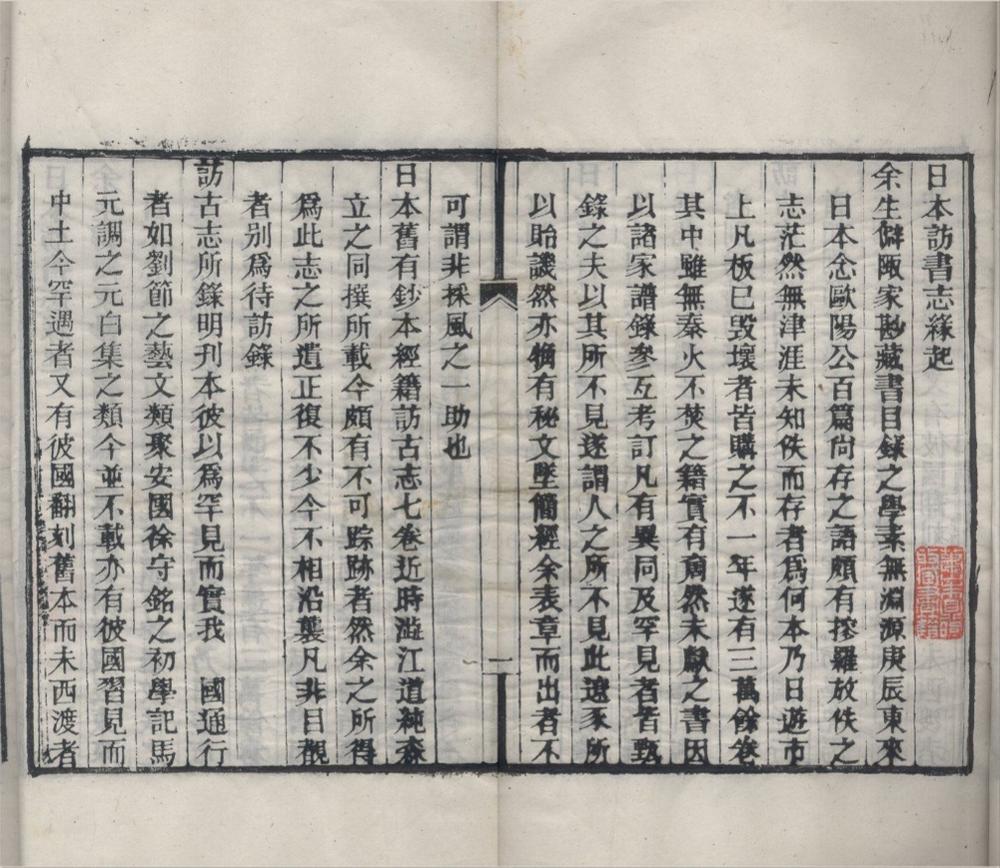 日本訪書志緣起
余生僻陬家尠藏書目錄之學素無淵源庚辰東來
日本念歐陽公百篇尙存之語頗有搜羅放佚之
志茫然無津涯未知佚而存者爲何本乃日遊市
上凡板已毀壞者皆購之不一年遂有三萬餘卷
其中雖無秦火不焚之籍實有奝然未獻之書因
以諸家譜錄參互考訂凡有異同及罕見者皆甄
錄之夫以其所不見遂謂人之所不見此遼豕所
以貽譏然亦猶有秘文墜簡經余表章而出者不
可謂非採風之一助也
日本舊有鈔本經籍訪古志七卷近時澁江道純森
立之同撰所載今頗有不可踪跡者然余之所得
爲此志之所遺正復不少今不相沿襲凡非目覩
者別爲待訪錄
訪古志所錄明刊本彼以爲罕見而實我　國通行
者如劉節之藝文類聚安國徐守銘之初學記馬
元調之元白集之類今並不載亦有彼國習見而
中土今罕遇者又有彼國翻刻舊本而未西渡者
一